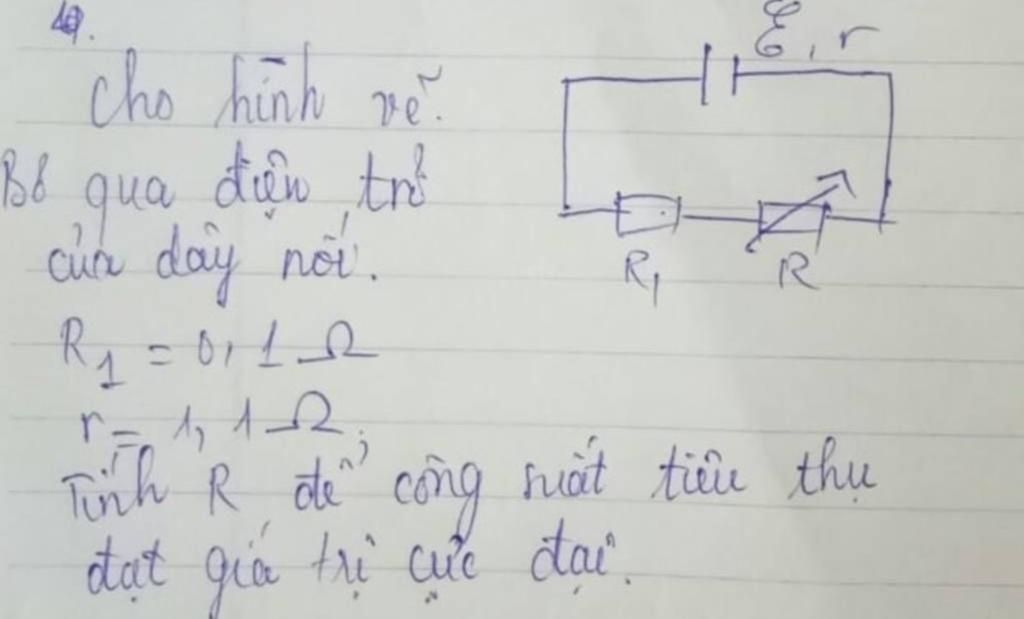 Cho hình vẽ.
ℰ, r
Bỏ qua điện trở
của dây nối.
R₁
R
R₁ = 0,1 Ω
r = 1,1 Ω;
Tính R để công suất tiêu thụ
đạt giá trị cực đại.